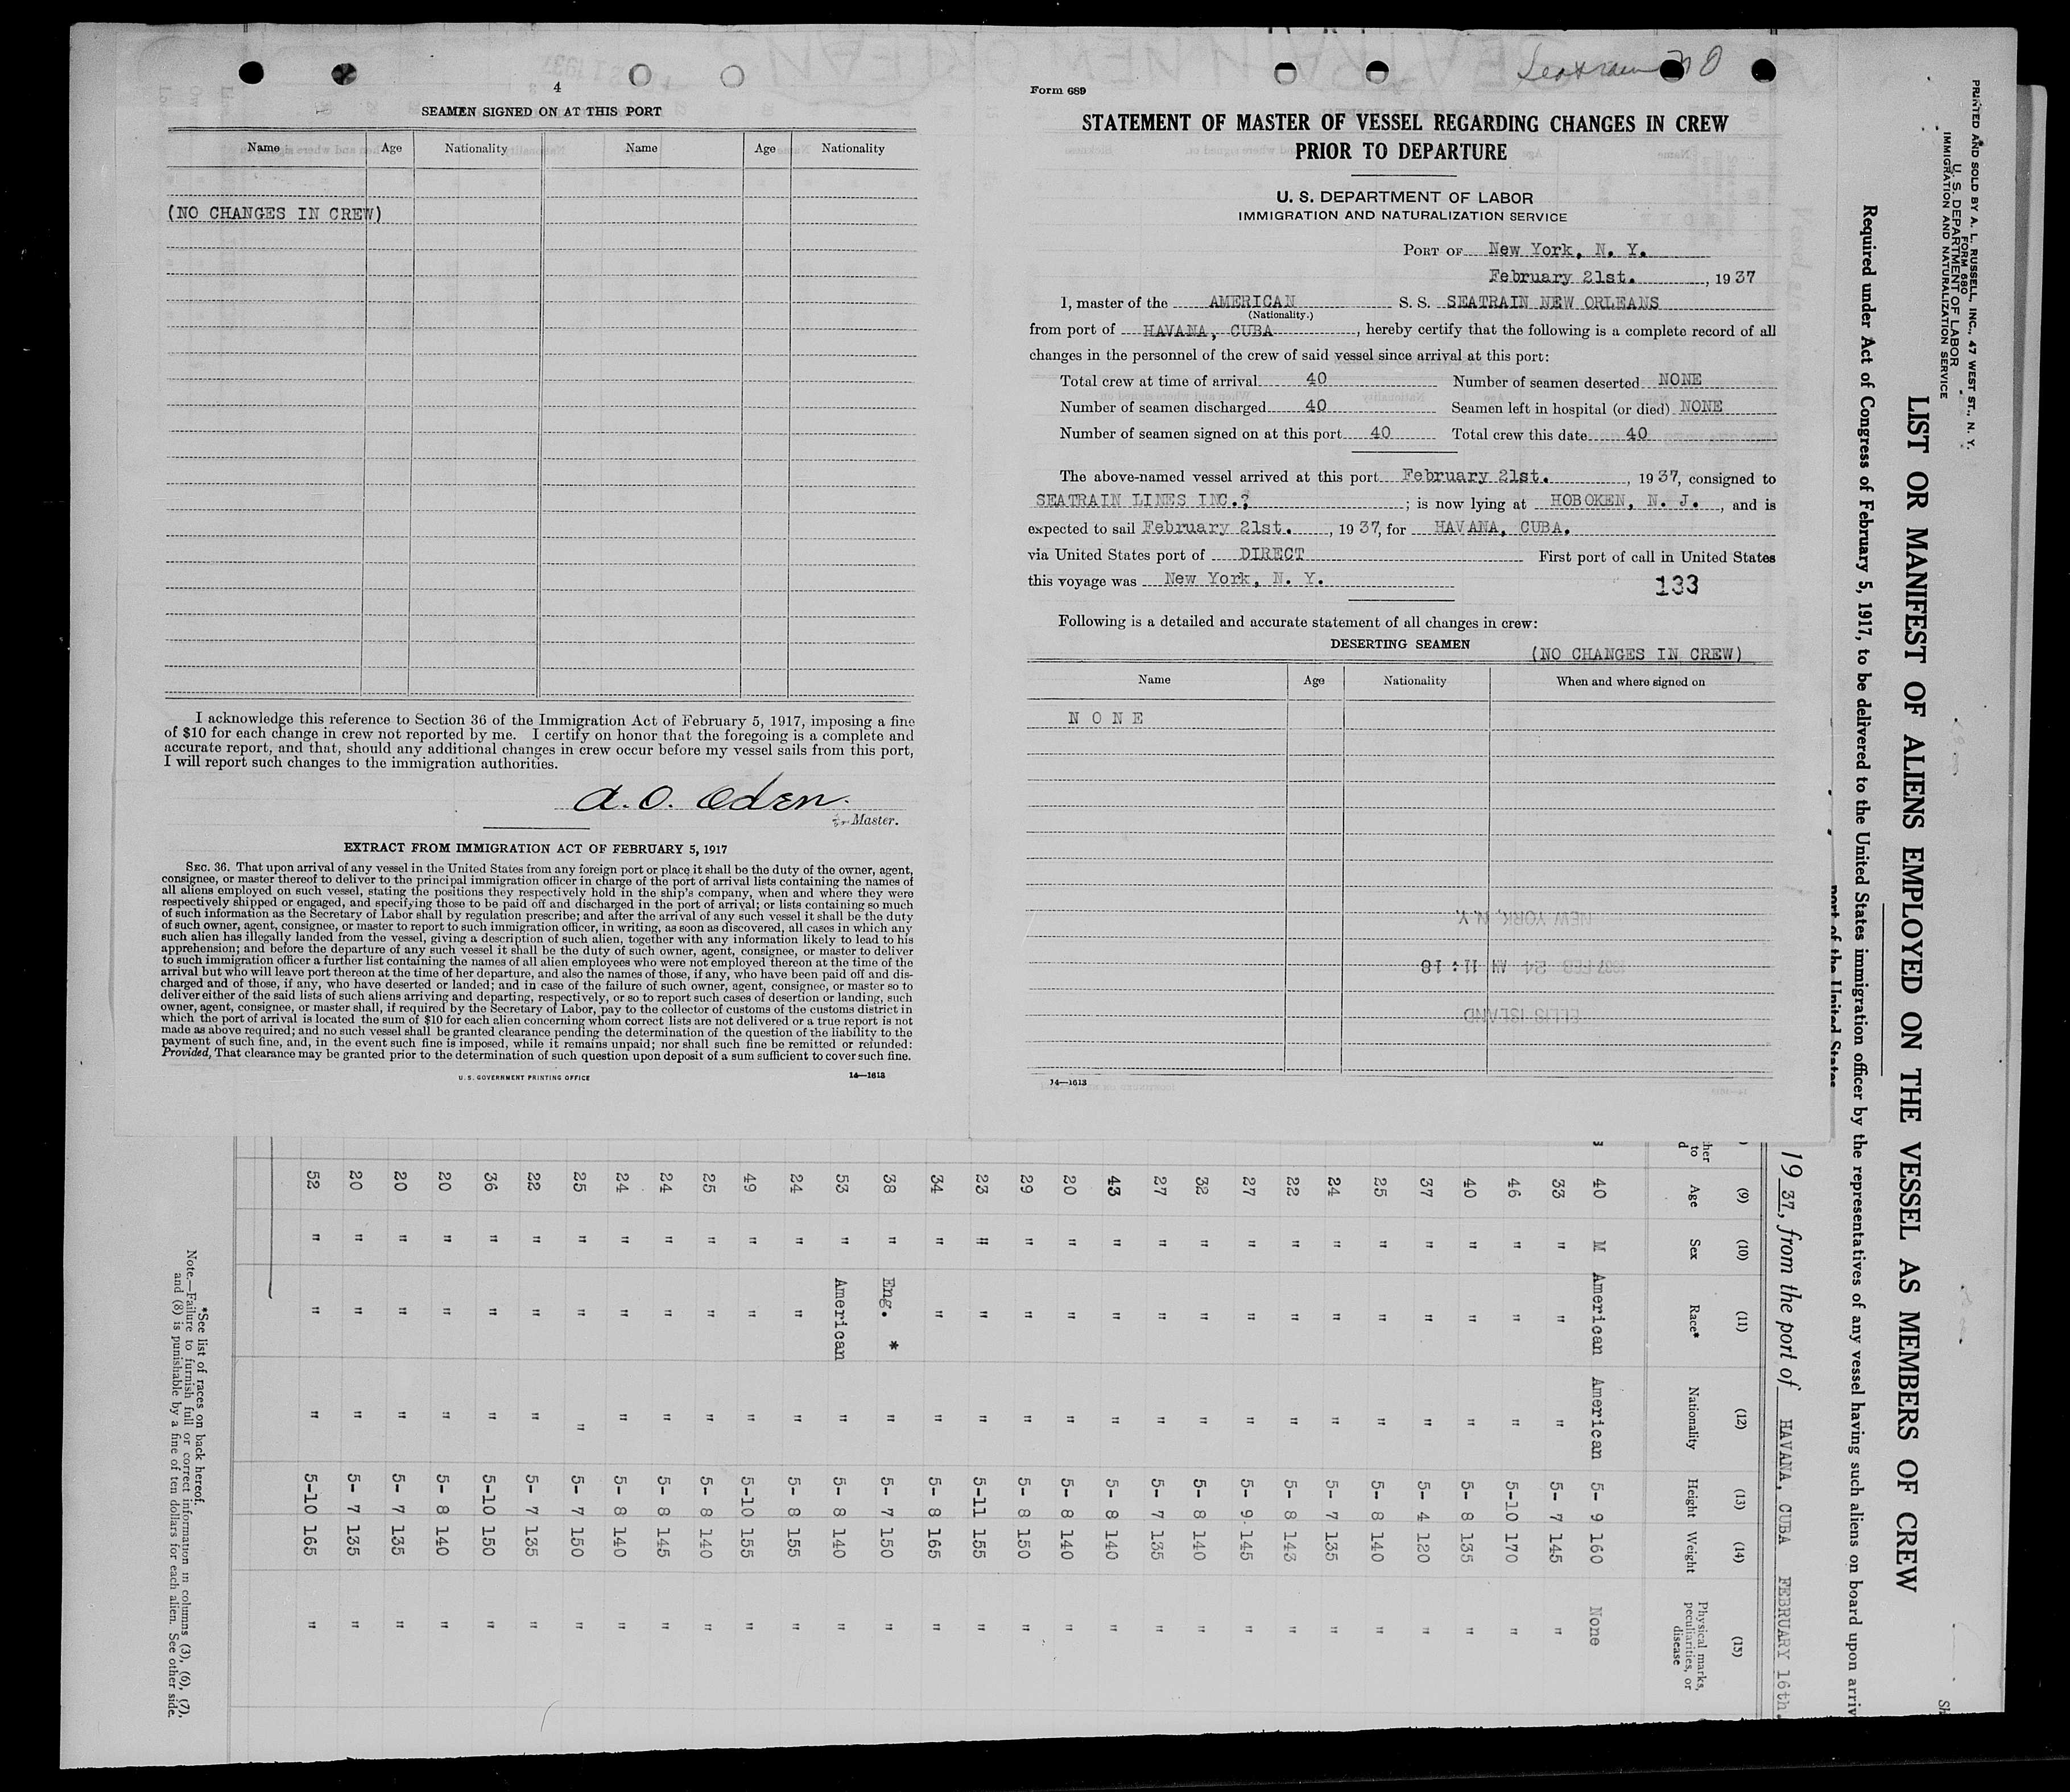 4
SEAMEN SIGNED ON AT THIS PORT
Name Age Nationality Name Age Nationality
(NO CHANGES IN CREW)
I acknowledge this reference to Section 36 of the Immigration Act of February 5, 1917, imposing a fine
of $10 for each change in crew not reported by me. I certify on honor that the foregoing is a complete and
accurate report, and that, should any additional changes in crew occur before my vessel sails from this port,
I will report such changes to the immigration authorities.
A. O. Oden.
Master.
EXTRACT FROM IMMIGRATION ACT OF FEBRUARY 5, 1917
SEC. 36. That upon arrival of any vessel in the United States from any foreign port or place it shall be the duty of the owner, agent,
consignee, or master thereof to deliver to the principal immigration officer in charge of the port of arrival lists containing the names of
all aliens employed on such vessel, stating the positions they respectively hold in the ship's company, when and where they were
respectively shipped or engaged, and specifying those to be paid off and discharged in the port of arrival; or lists containing so much
of such information as the Secretary of Labor shall by regulation prescribe; and after the arrival of any such vessel it shall be the duty
of such owner, agent, consignee, or master to report to such immigration officer, in writing, as soon as discovered, all cases in which any
such alien has illegally landed from the vessel, giving a description of such alien, together with any information likely to lead to his
apprehension; and before the departure of any such vessel it shall be the duty of such owner, agent, consignee, or master to deliver
to such immigration officer a further list containing the names of all alien employees who were not employed thereon at the time of the
arrival but who will leave port thereon at the time of her departure, and also the names of those, if any, who have been paid off and dis-
charged and of those, if any, who have deserted or landed; and in case of the failure of such owner, agent, consignee, or master so to
deliver either of the said lists of such aliens arriving and departing, respectively, or so to report such cases of desertion or landing, such
owner, agent, consignee, or master shall, if required by the Secretary of Labor, pay to the collector of customs of the customs district in
which the port of arrival is located the sum of $10 for each alien concerning whom correct lists are not delivered or a true report is not
made as above required; and no such vessel shall be granted clearance pending the determination of the question of the liability to the
payment of such fine, and, in the event such fine is imposed, while it remains unpaid; nor shall such fine be remitted or refunded:
Provided, That clearance may be granted prior to the determination of such question upon deposit of a sum sufficient to cover such fine.
U. S. GOVERNMENT PRINTING OFFICE 14—1613
Seatrain N O
Form 689
STATEMENT OF MASTER OF VESSEL REGARDING CHANGES IN CREW
PRIOR TO DEPARTURE
U. S. DEPARTMENT OF LABOR
IMMIGRATION AND NATURALIZATION SERVICE
PORT OF New York, N. Y.
February 21st., 1937
I, master of the AMERICAN S. S. SEATRAIN NEW ORLEANS
(Nationality.)
from port of HAVANA, CUBA, hereby certify that the following is a complete record of all
changes in the personnel of the crew of said vessel since arrival at this port:
Total crew at time of arrival 40 Number of seamen deserted NONE
Number of seamen discharged 40 Seamen left in hospital (or died) NONE
Number of seamen signed on at this port 40 Total crew this date 40
The above-named vessel arrived at this port February 21st., 1937, consigned to
SEATRAIN LINES INC.?; is now lying at HOBOKEN, N. J., and is
expected to sail February 21st., 1937, for HAVANA, CUBA.
via United States port of DIRECT First port of call in United States
this voyage was New York, N. Y.
133
Following is a detailed and accurate statement of all changes in crew:
DESERTING SEAMEN (NO CHANGES IN CREW)
Name Age Nationality When and where signed on
N O N E
NEW YORK, N.Y.
1937 FEB 24 AM 11:18
ELLIS ISLAND
14—1613
PRINTED AND SOLD BY A. L. RUSSELL, INC., 47 WEST ST., N. Y.
FORM 680
U. S. DEPARTMENT OF LABOR
IMMIGRATION AND NATURALIZATION SERVICE
LIST OR MANIFEST OF ALIENS EMPLOYED ON THE VESSEL AS MEMBERS OF CREW
Required under Act of Congress of February 5, 1917, to be delivered to the United States immigration officer by the representatives of any vessel having such aliens on board upon arriv
port of the United States
1937, from the port of HAVANA, CUBA FEBRUARY 16th.
(9) (10) (11) (12) (13) (14) (15)
Age Sex Race* Nationality Height Weight Physical marks, peculiarities, or disease
40 M American American 5- 9 160 None
33 " " " 5- 7 145 "
46 " " " 5-10 170 "
40 " " " 5- 8 135 "
37 " " " 5- 4 120 "
25 " " " 5- 8 140 "
24 " " " 5- 7 135 "
22 " " " 5- 8 143 "
27 " " " 5- 9 145 "
32 " " " 5- 8 140 "
27 " " " 5- 7 135 "
43 " " " 5- 8 140 "
20 " " " 5- 8 140 "
29 " " " 5- 8 150 "
23 " " " 5-11 155 "
34 " " " 5- 8 165 "
38 " Eng. * " 5- 7 150 "
53 " American " 5- 8 140 "
24 " " " 5- 8 155 "
49 " " " 5-10 155 "
25 " " " 5- 8 140 "
24 " " " 5- 8 145 "
24 " " " 5- 8 140 "
25 " " " 5- 7 150 "
22 " " " 5- 7 135 "
36 " " " 5-10 150 "
20 " " " 5- 8 140 "
20 " " " 5- 7 135 "
20 " " " 5- 7 135 "
52 " " " 5-10 165 "
*See list of races on back hereof.
Note.—Failure to furnish full or correct information in columns (3), (6), (7),
and (8) is punishable by a fine of ten dollars for each alien. See other side.